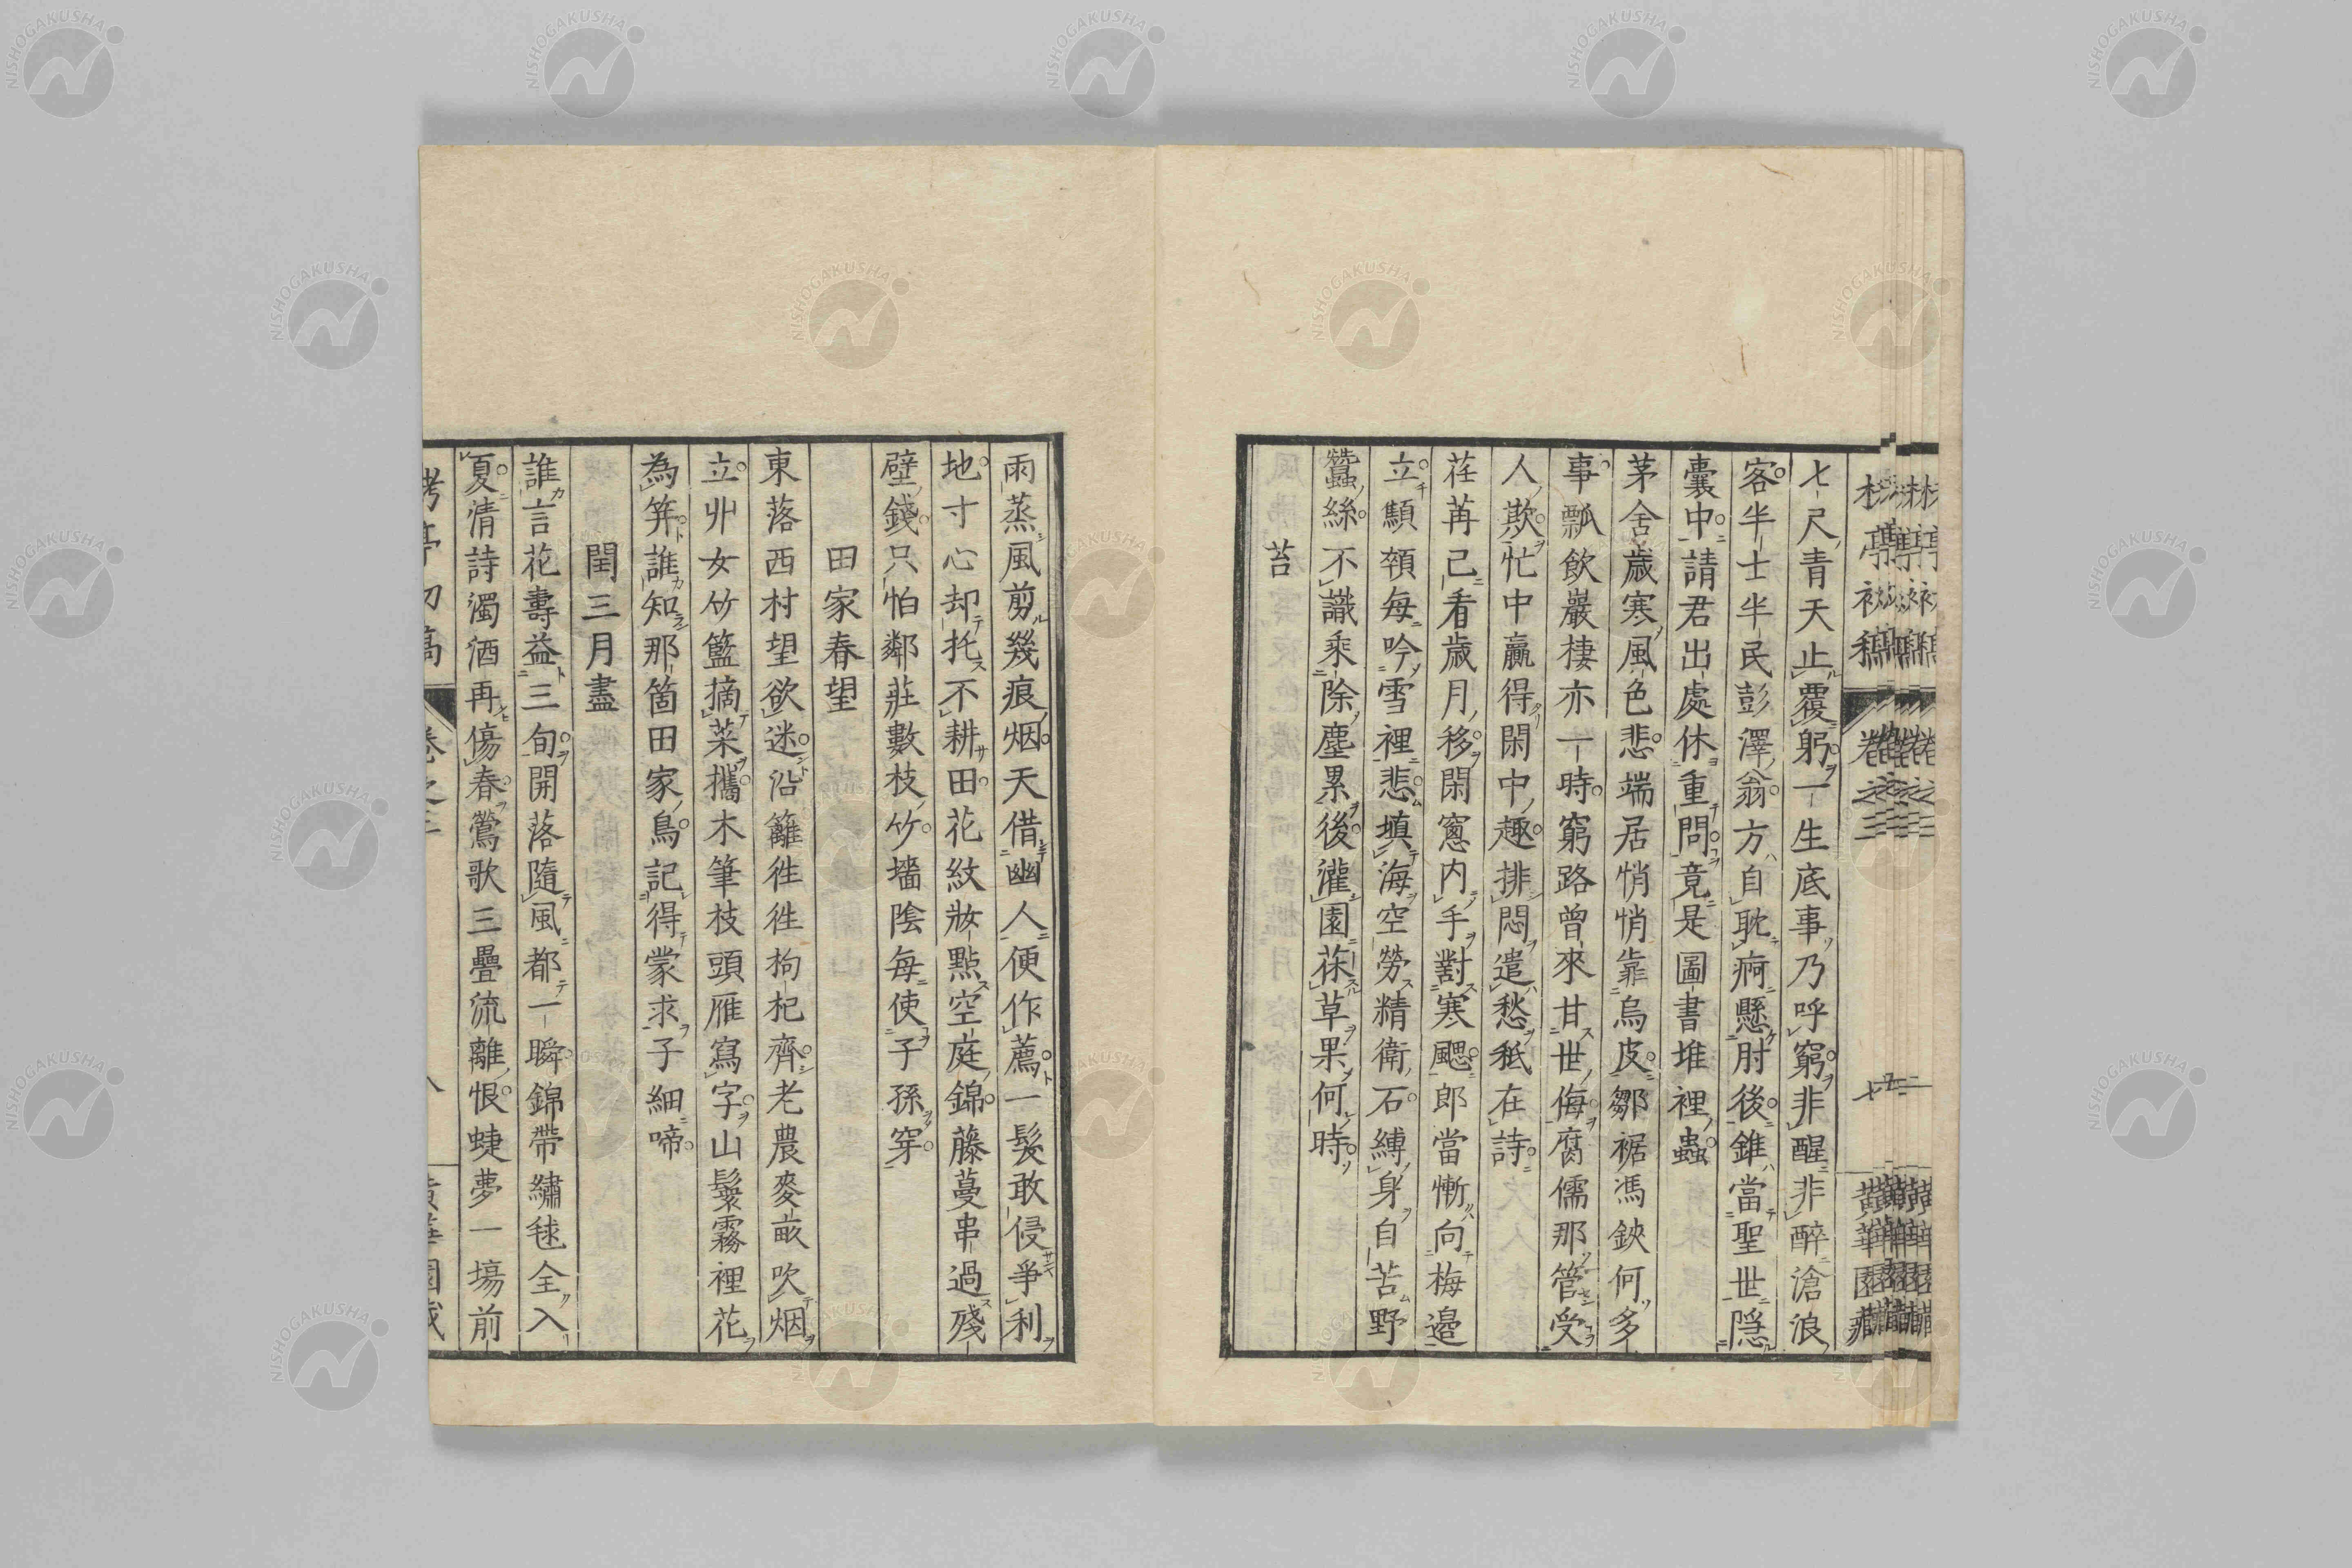 七尺青天止覆躬一生底事乃呼窮非醒非醉滄浪
客半士半民彭澤翁方自耽痾懸肘後錐當聖世隠
囊中請君出處休重問竟是圖書堆裡蟲
茅舍歳寒風色悲端居悄悄靠烏皮鄒裾馮鋏何多
事瓢飲巖棲亦一時窮路曾來甘世侮腐儒那管受
人欺忙中贏得閑中趣排悶遣愁秖在詩
荏苒已看歳月移閑窻内手對寒颸郎當慚向梅邉
立顒頷每吟雪裡悲填海空勞精衛石縛身自苦野
蠶絲不識乘除塵累後灌園蒔草果何時
苔
雨蒸風剪幾痕烟天借幽人便作薦一髮敢侵爭利
地寸心却托不耕田花紋妝點空庭錦藤蔓串過殘
壁錢只怕鄰莊數枝竹墻陰每使子孫穿
田家春望
東落西村望欲迷沿籬徃徃枸杞齊老農麥畝吹烟
立丱女竹籃摘菜攜木筆枝頭雁寫字山鬟霧裡花
為笄誰知那箇田家鳥記得蒙求子細啼
閏三月盡
誰言花壽益三旬開落隨風都一瞬錦帶繡毬全入
夏清詩濁酒再傷春鶯歌三疊流離恨蜨夢一塲前
栲亭初稿 卷之三 七 黄華園藏
栲亭初稿 卷之三 八 黄華園藏
NISHOGAKUSHA